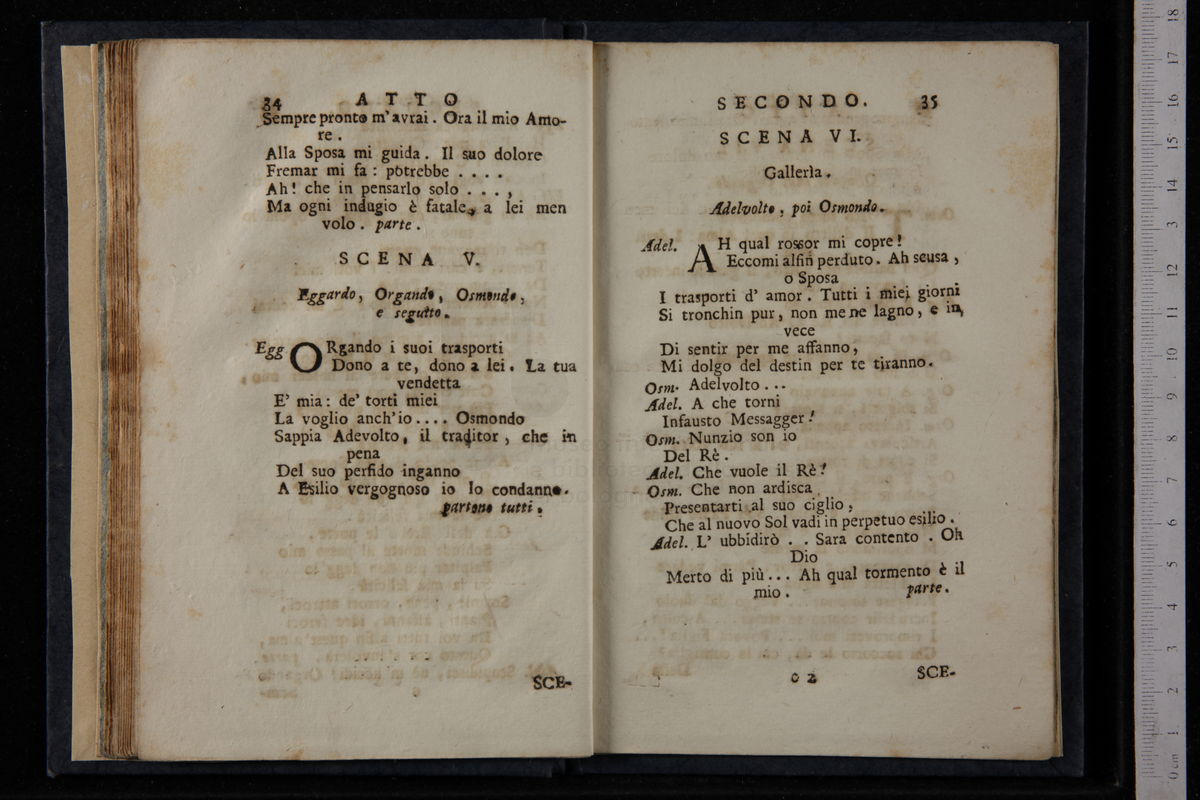 34 ATTO
Sempre pronto m'avrai. Ora il mio Amo-
re.
Alla Sposa mi guida. Il suo dolore
Fremar mi fa: potrebbe ....
Ah! che in pensarlo solo ....,
Ma ogni indugio è fatale, a lei men
volo. parte.
SCENA V.
Eggardo, Orgando, Osmondo,
e seguito.
Egg ORgando i suoi trasporti
Dono a te, dono a lei. La tua
vendetta
E' mia: de' torti miei
La voglio anch'io.... Osmondo
Sappia Adevolto, il traditor, che in
pena
Del suo perfido inganno
A Esilio vergognoso io lo condanno.
partono tutti.
SCE-
SECONDO. 35
SCENA VI.
Gallerìa.
Adelvolto, poi Osmondo.
Adel. AH qual rossor mi copre!
Eccomi alfin perduto. Ah scusa,
o Sposa
I trasporti d' amor. Tutti i miei giorni
Si tronchin pur, non mene lagno, e in
vece
Di sentir per me affanno,
Mi dolgo del destin per te tiranno.
Osm. Adelvolto...
Adel. A che torni
Infausto Messagger!
Osm. Nunzio son io
Del Rè.
Adel. Che vuole il Rè!
Osm. Che non ardisca
Presentarti al suo ciglio,
Che al nuovo Sol vadi in perpetuo esilio.
Adel. L' ubbidirò . . Sara contento. Oh
Dio
Merto di più... Ah qual tormento è il
mio. parte.
C 2 SCE-
0 cm 1 2 3 4 5 6 7 8 9 10 11 12 13 14 15 16 17 18